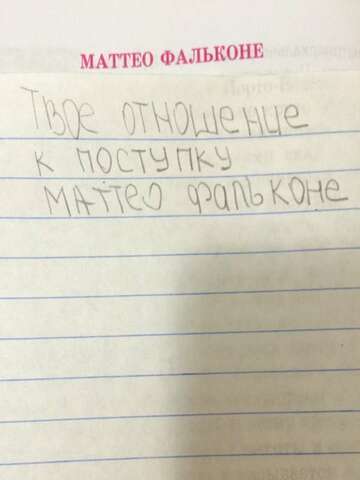 МАТТЕО ФАЛЬКОНЕ
Твое отношение
к поступку
Маттео Фальконе